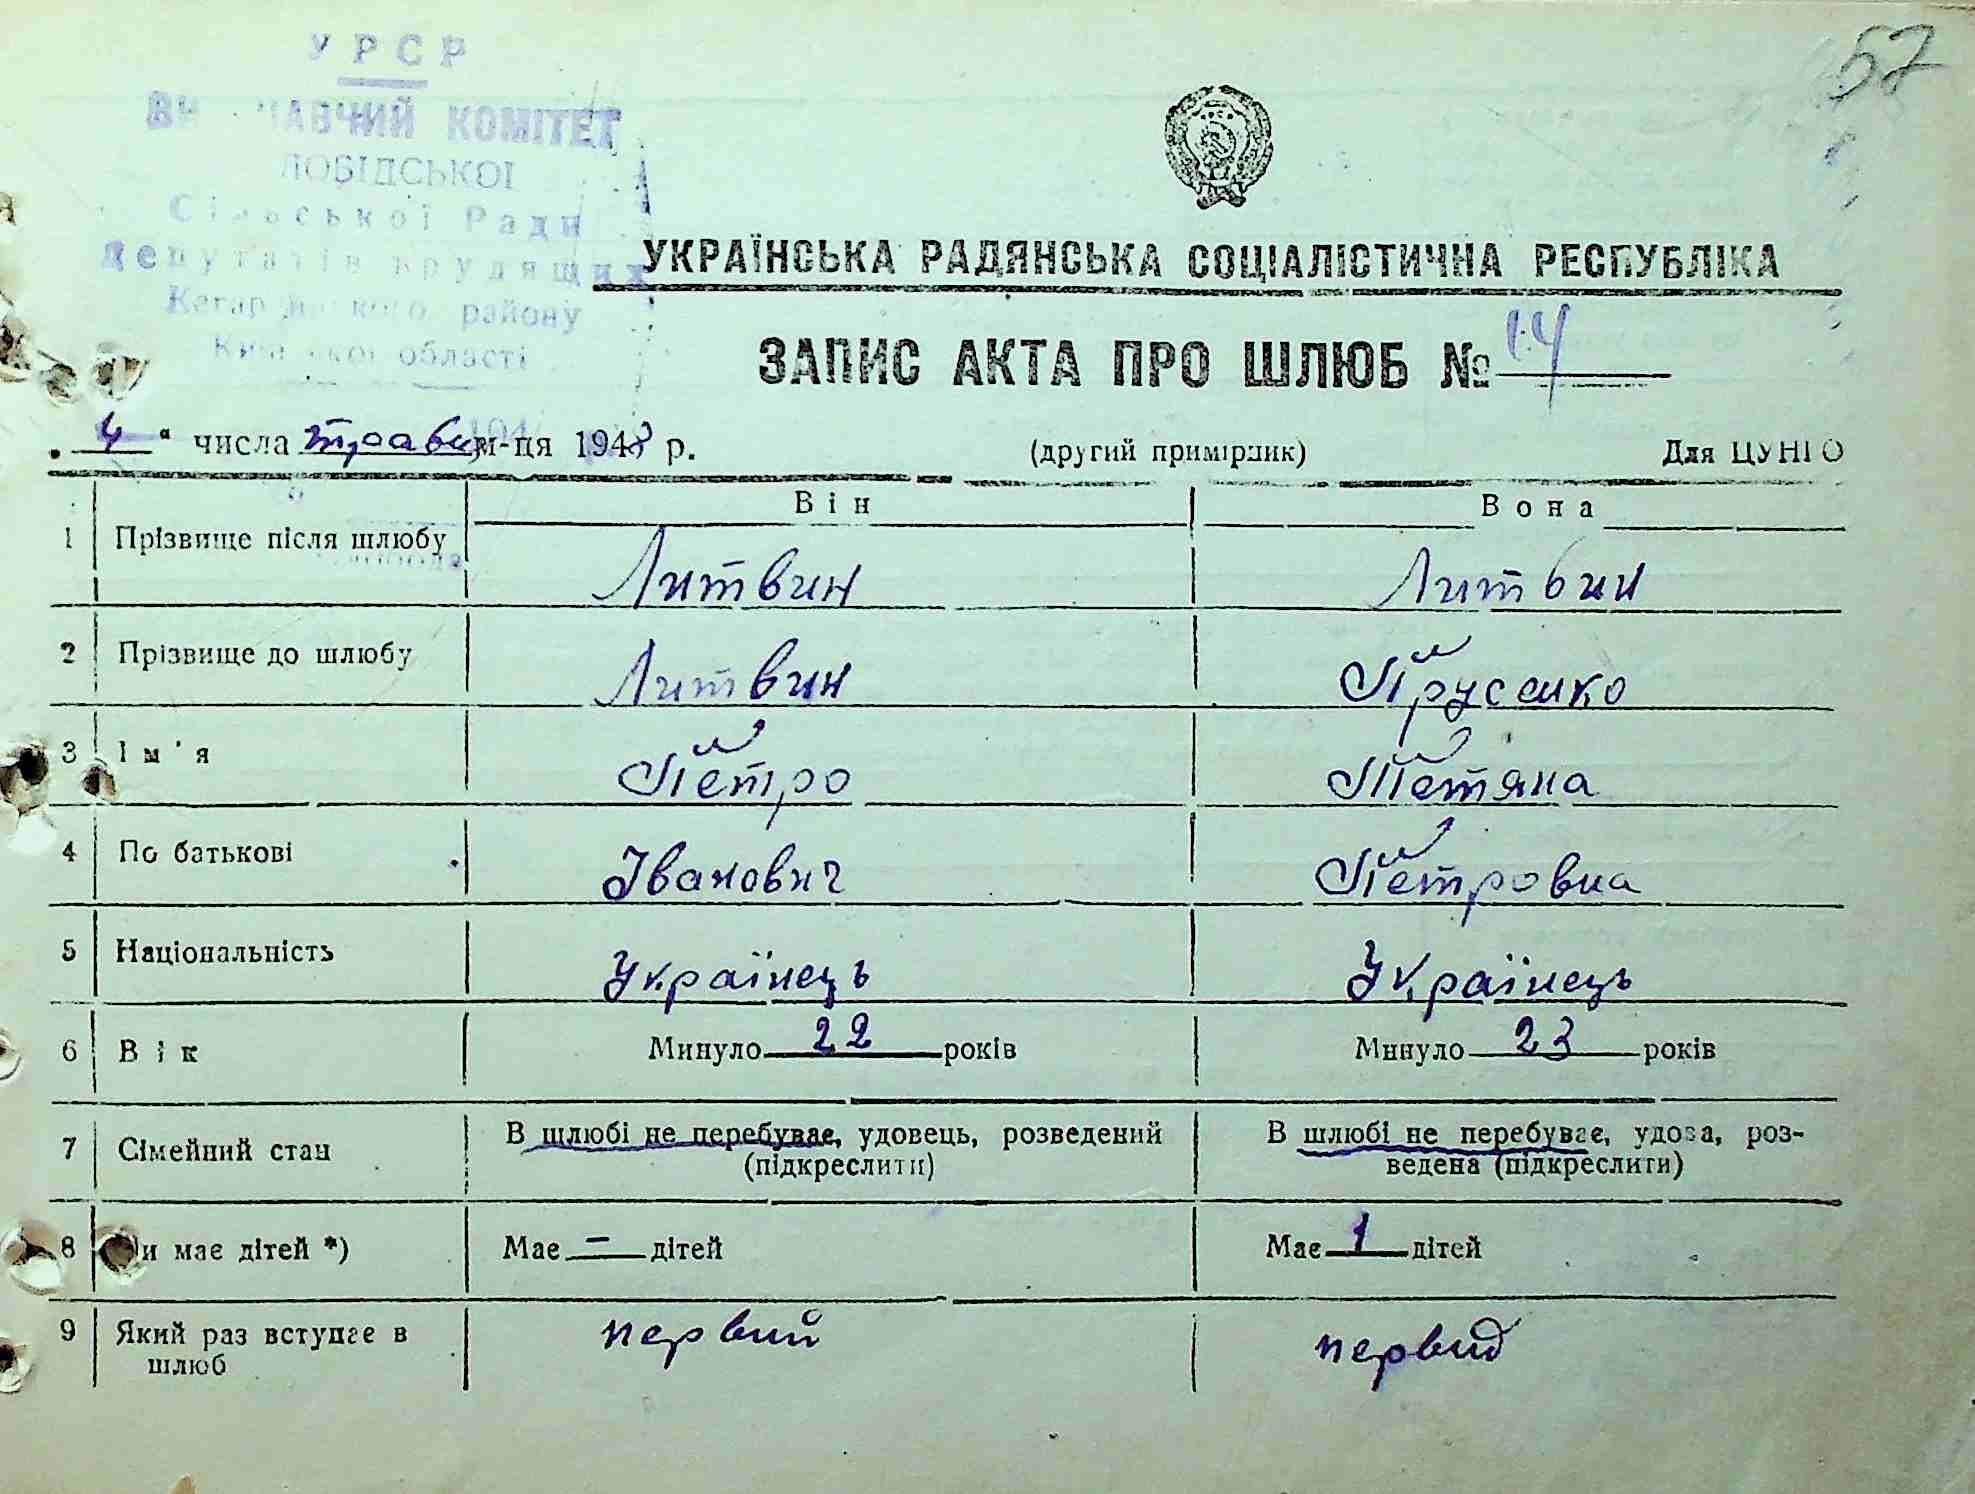 УРСР
57
КОМІТЕТ
Ради
району
області
УКРАЇНСЬКА РАДЯНСЬКА СОЦІАЛІСТИЧНА РЕСПУБЛІКА
ЗАПИС АКТА ПРО ШЛЮБ № 14
" 4 " числа травн м-ця 1948 р. (другий примірник) Для ЦУНГО
Він Вона
1 Прізвище після шлюбу Литвин Литвин
2 Прізвище до шлюбу Литвин
3 Ім'я Петро Тетяна
4 По батькові Іванович Петровна
5 Національність Українець Українець
6 Вік Минуло 22 років Минуло 23 років
7 Сімейний стан В шлюбі не перебуває, удовець, розведений (підкреслити) В шлюбі не перебуває, удова, роз-
ведена (підкреслити)
8 Чи має дітей *) Має - дітей Має 1 дітей
9 Який раз вступає в шлюб первий первий